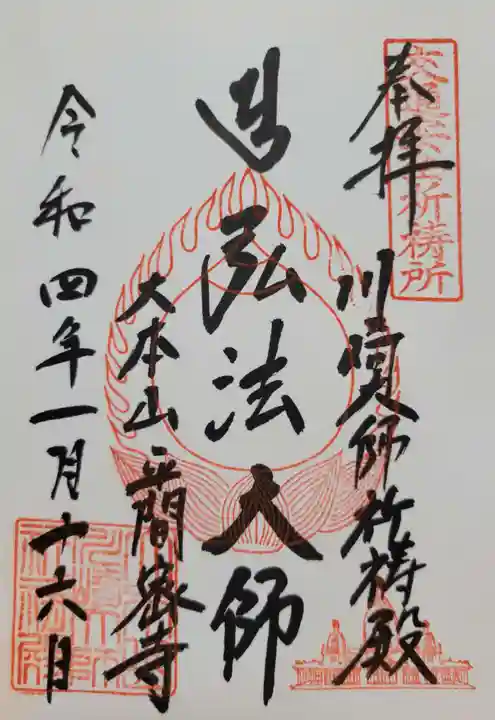 交通安全祈祷所
奉拝
川
師祈祷殿
弘法大師
大本山平間密寺
令和四年一月十六日